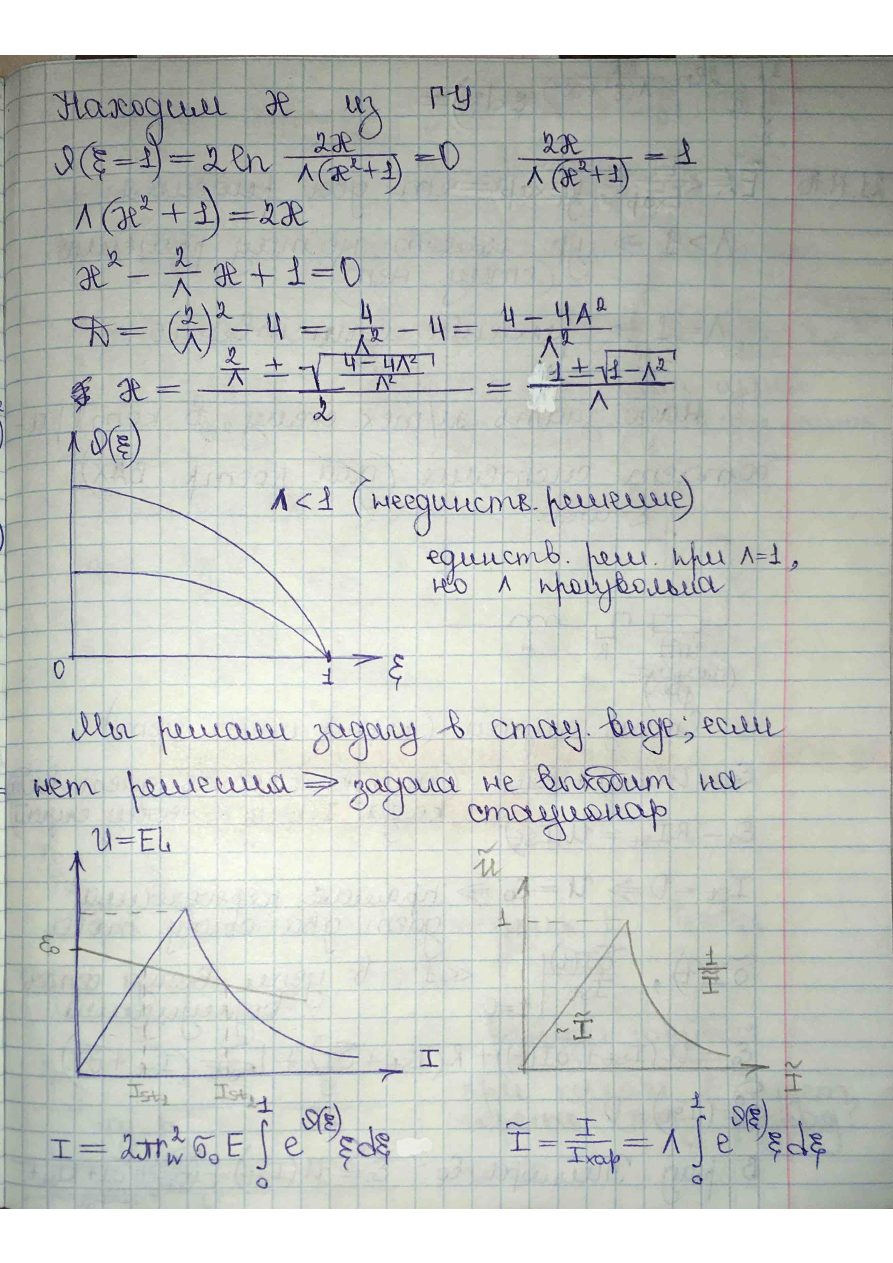 Находим ϰ из ГУ
ϑ(ξ=1) = 2 ln 2ϰ / Λ(ϰ²+1) = 0    2ϰ / Λ(ϰ²+1) = 1
Λ(ϰ² + 1) = 2ϰ
ϰ² − 2/Λ ϰ + 1 = 0
D = (2/Λ)² − 4 = 4/Λ² − 4 = (4 − 4Λ²)/Λ²
ϰ = (2/Λ ± √((4 − 4Λ²)/Λ²))/2 = (1 ± √(1−Λ²))/Λ
ϑ(ξ)
Λ < 1 (неединств. решение)
единств. реш. при Λ=1,
но Λ произвольна
0 1 ξ
Мы решали задачу в стац. виде; если
нет решения ⇒ задача не выходит на
стационар
U = EL
Ũ
1
ε₀
1/Ĩ
~Ĩ
I
Ĩ
Ist₁ Ist₂
I = 2πr_w² σ₀ E ∫₀¹ e^ϑ(ξ) ξ dξ
Ĩ = I/Iхар = Λ ∫₀¹ e^ϑ(ξ) ξ dξ